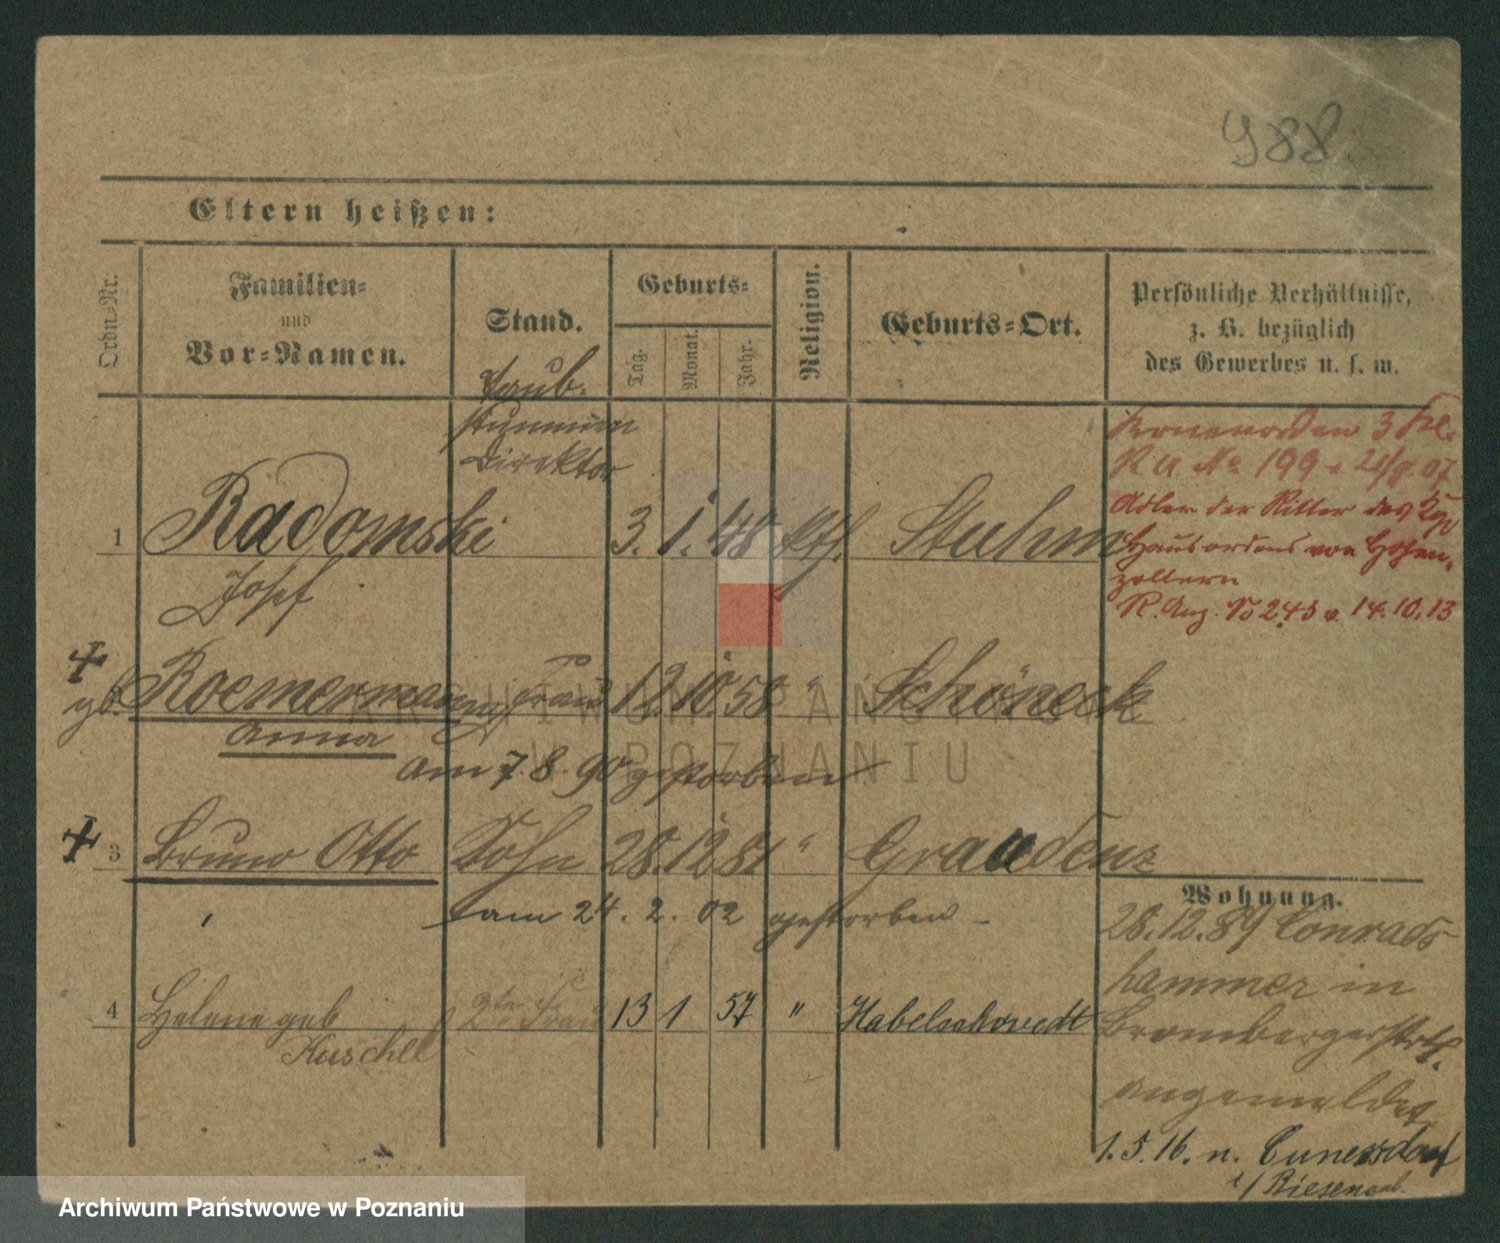 988.
Eltern heißen:
Ordn.-Nr.
Familien-
und
Vor-Namen.
Stand.
Geburts-
Tag.
Monat.
Jahr.
Religion.
Geburts-Ort.
Persönliche Verhältnisse,
z. B. bezüglich
des Gewerbes u. s. w.
Taub-
stummen
Direktor
1 Radomski 3. 1. 48 kth. Stuhm
Josef
Kronenorden 3 Kl.
R A No 199 v 24/8. 07
Adler der Ritter des Kgl
Hausordens von Hohen-
zollern
R. Anz. No 243 v. 14.10.13
gb. Roemermann Frau 12. 10. 58 " Schöneck
Anna
am 7. 8. 90 gestorben
3 Bruno Otto Sohn 28. 12 81 " Graudenz
am 24. 2. 02 gestorben -
Wohnung.
28.12.89 Conrads
hammer in
Brombergerstr.
angemeldet
4 Helene geb 2te Frau 13 1 57 " Habelschwedt
Kuschel
1. 5. 16. n. Cunersdorf
i/ Riesengeb.
ARCHIWUM PAŃSTWOWE
W POZNANIU
Archiwum Państwowe w Poznaniu